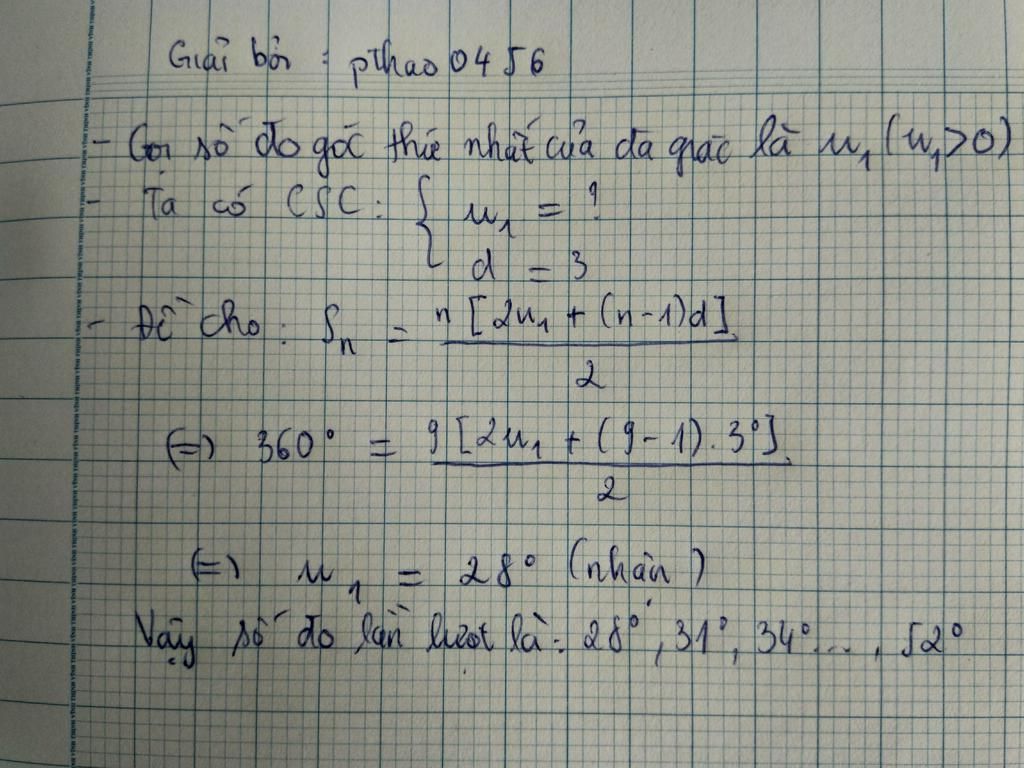 Giải bởi : pthao0456
- Gọi số đo góc thứ nhất của đa giác là u₁ (u₁>0)
- Ta có CSC: { u₁ = ?
d = 3
- Đề cho: Sₙ = n[2u₁ + (n-1)d] / 2
(=) 360° = 9[2u₁ + (9-1).3°] / 2
(=) u₁ = 28° (nhận)
Vậy số đo lần lượt là: 28°, 31°, 34°..., 52°